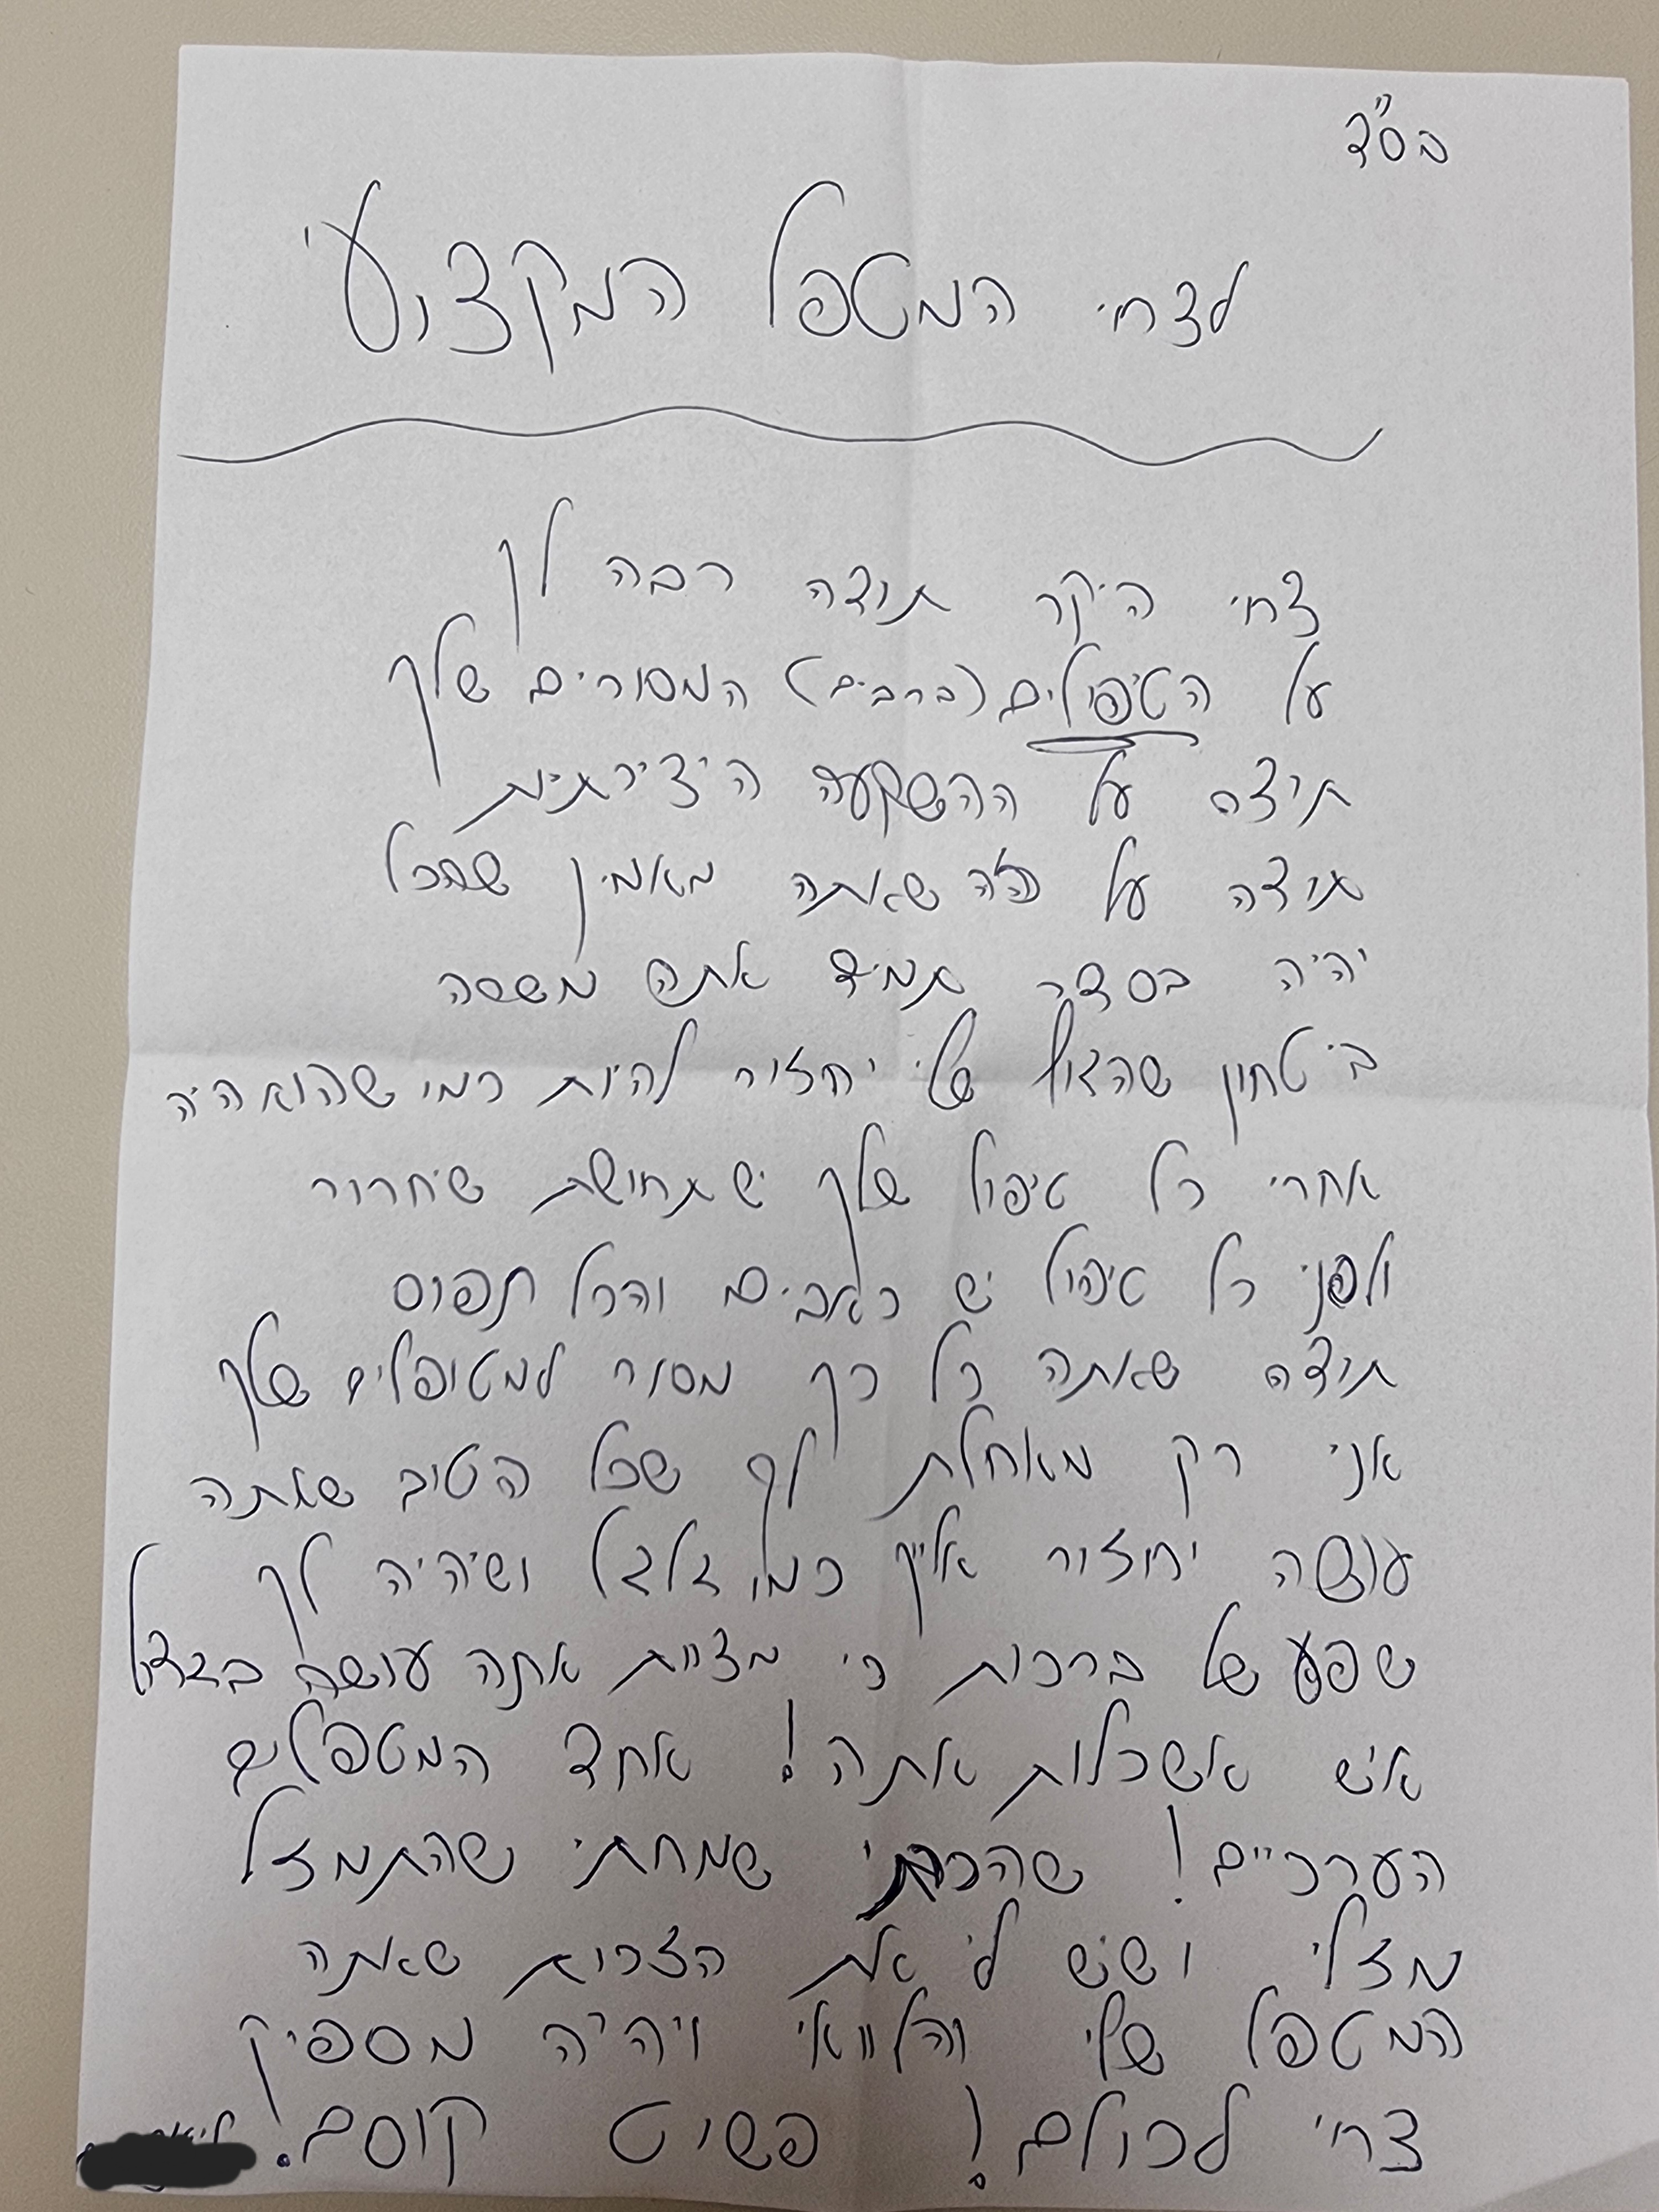 בס"ד
לצחי המטפל המקצועי
צחי היקר תודה רבה לך
על הטיפולים (ברבים) המסורים שלך
תודה על ההשקעה היצירתיות
תודה על זה שאתה מאמין שהכל
יהיה בסדר תמיד אתה משסה
ביטחון שהגוף שלי יחזור להיות כמו שהוא היה
אחרי כל טיפול שלך יש תחושת שיחרור
ולפני כל טיפול יש כאבים והכל תפוס
תודה שאתה כל כך מסור למטופלים שלך
אני רק מאחלת לך שכל הטוב שאתה
עושה יחזור אליך כמו גלגל ושיהיה לך
שפע של ברכות כי מצוות אתה עושה בגדול
איש אשכולות אתה! אחד המטפלים
הערכיים! שהכרתי שמחתי שהתמזל
מזלי ושיש לי את הזכות שאתה
המטפל שלי והלוואי ויהיה מספיק
צחי לכולם! פשיט קוסם!